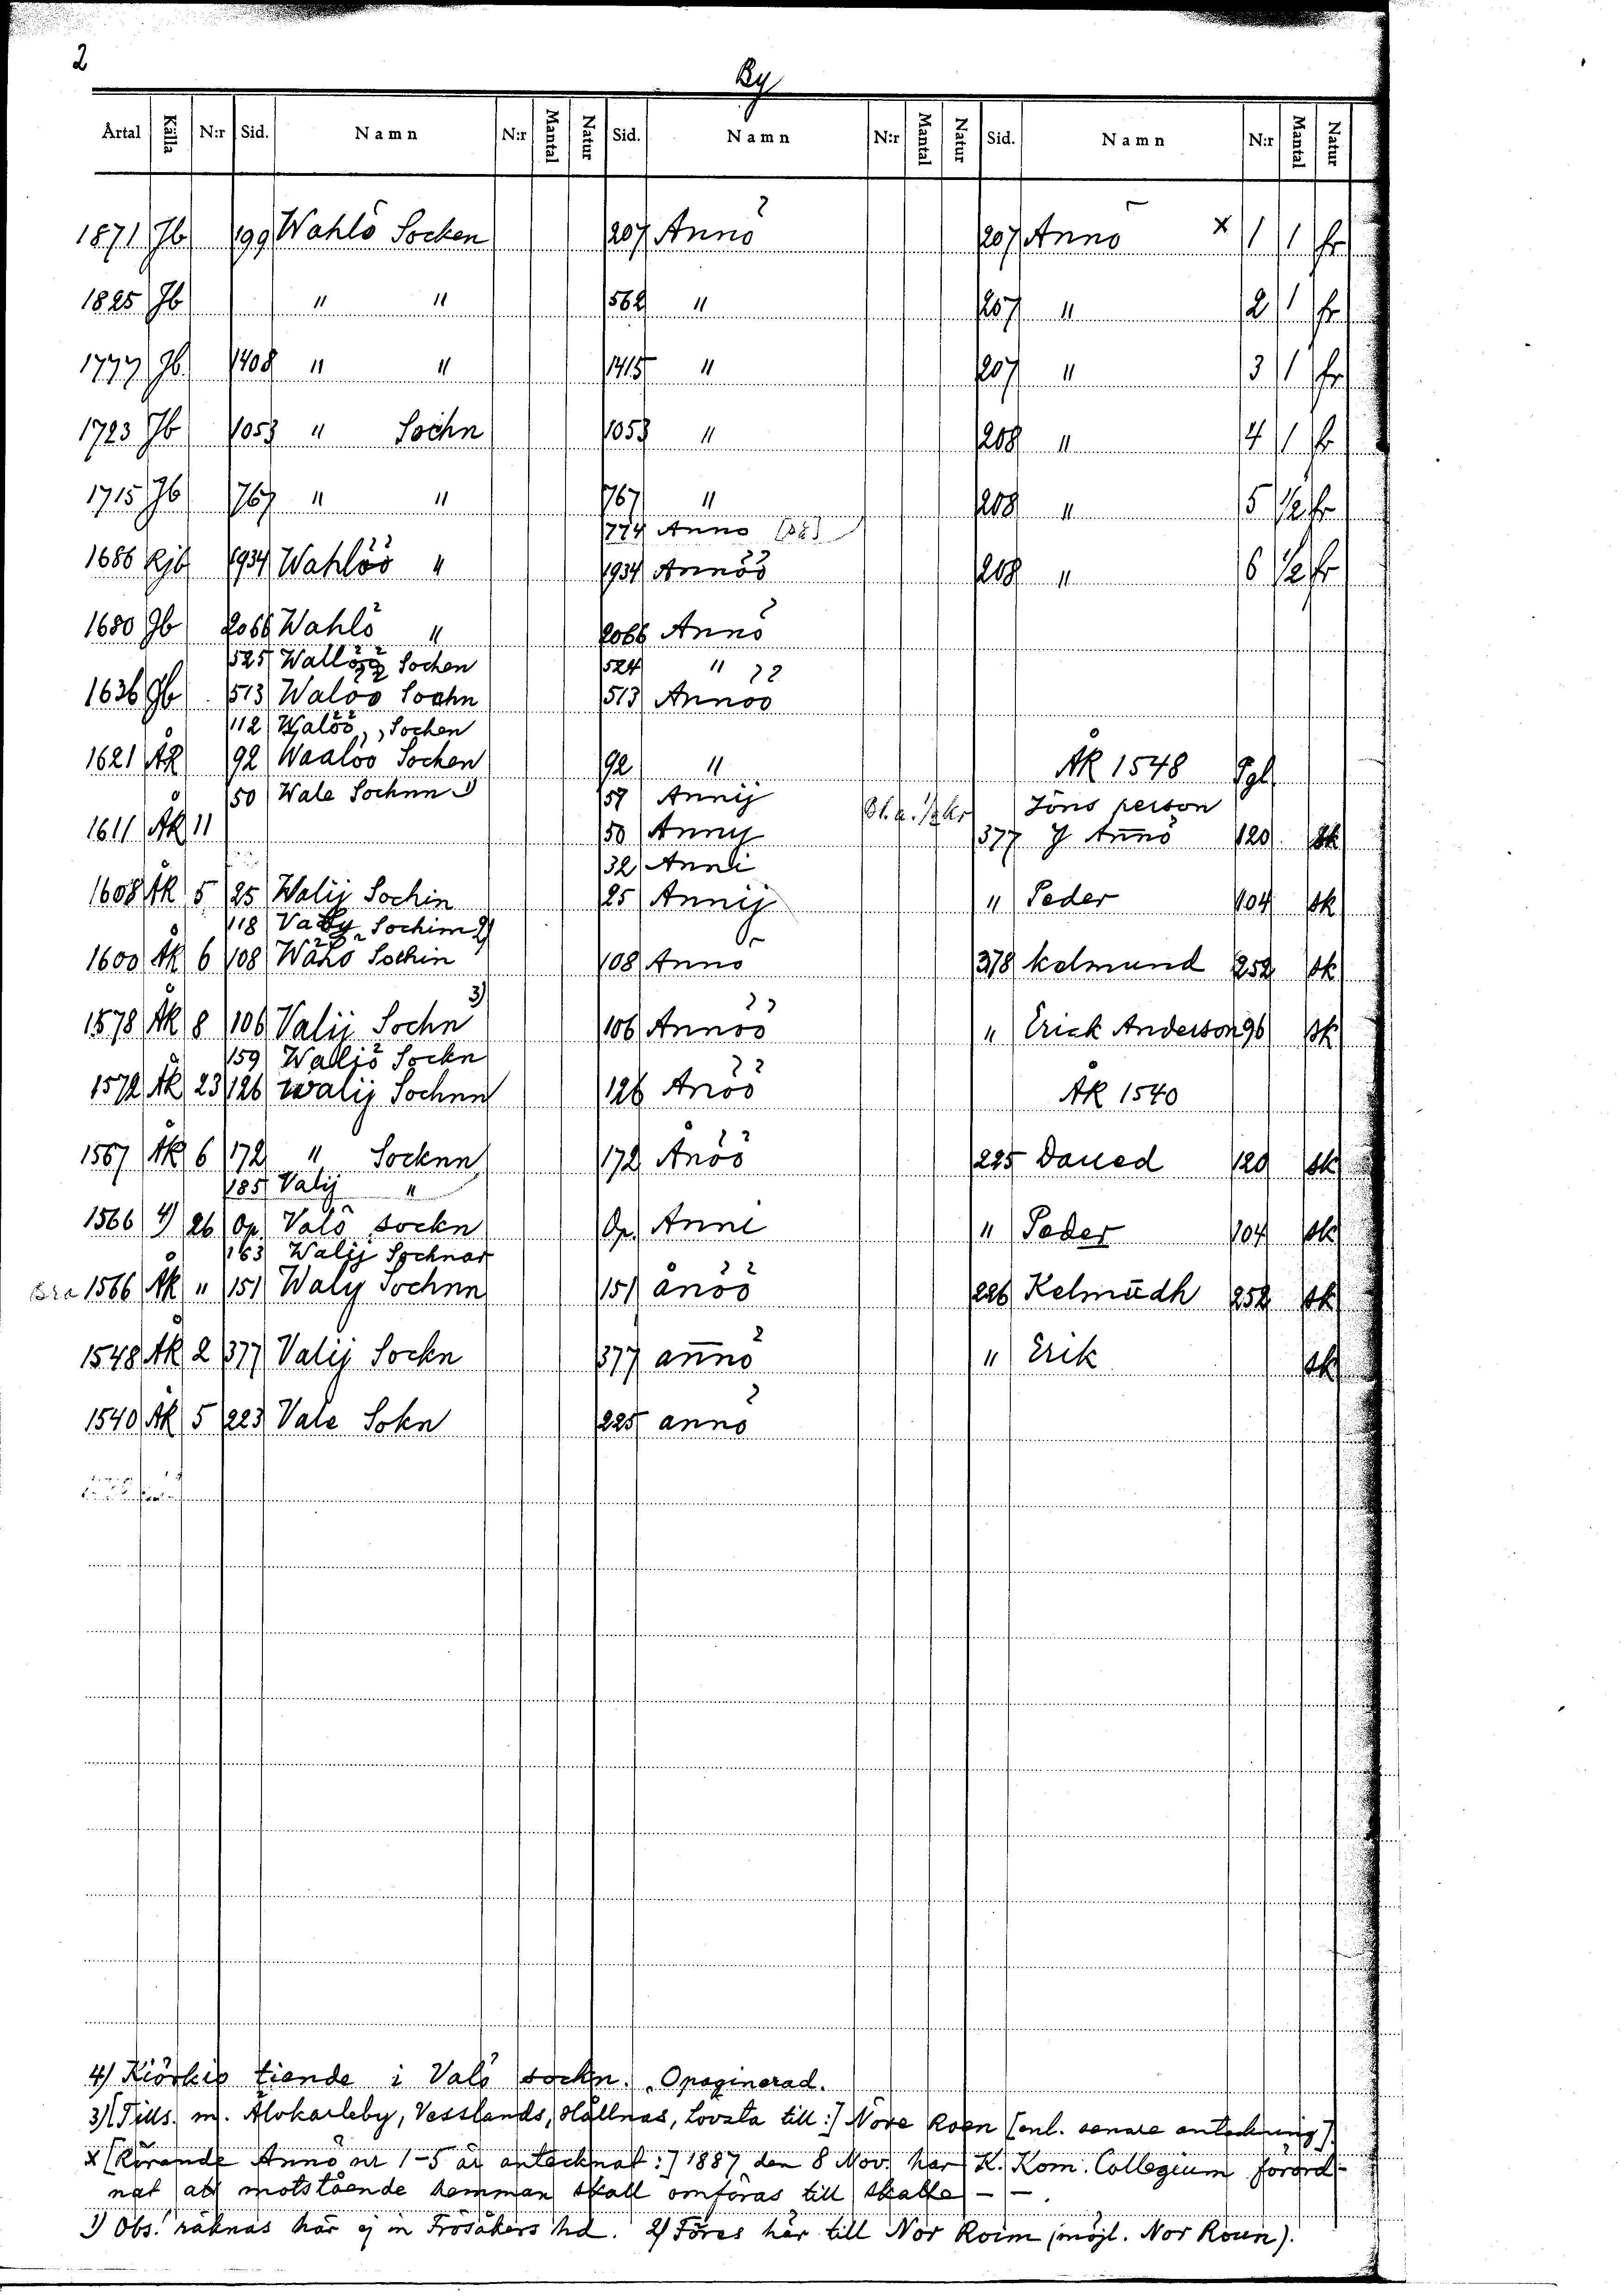 2
By
Årtal Källa N:r Sid. Namn N:r Mantal Natur Sid. Namn N:r Mantal Natur Sid. Namn N:r Mantal Natur
1871 Jb 199 Wahlö Socken 207 Annö 207 Annö x 1 1 fr
1825 Jb " " 562 " 207 " 2 1 fr
1777 Jb 1408 " " 1415 " 207 " 3 1 fr
1723 Jb 1053 " Sochn 1053 " 208 " 4 1 fr
1715 Jb 767 " " 767 " 208 " 5 1/2 fr
774 Anno
1686 Rjb 1934 Wahlöö " 1934 Annöö 208 " 6 1/2 fr
1680 Jb 2066 Wahlö " 2066 Annö
525 Wallöö Sochen 524 "
1636 Jb 513 Walöö Sochn 513 Annöö
112 Walöö, Sochen
1621 ÅK 92 Waalöö Sochen 92 " ÅK 1548 Pgl
50 Wale Sochnn 1) 57 Annij Jöns person
1611 ÅK 11 50 Anny 377 J An̄nö 120 sk
32 Anni
1608 ÅK 5 25 Walij Sochin 25 Annij " Peder 104 sk
118 Vaby Sochim 2)
1600 ÅK 6 108 Wälö Sochin 108 Anno 378 kelmund 252 sk
1578 ÅK 8 106 Valij Sochn 3) 106 Annöö " Erick Anderson 96 sk
159 Walljö Sockn
1572 ÅK 23 126 walij Sochnn 126 Anöö ÅK 1540
1567 ÅK 6 172 " Socknn 172 Anöö 225 Daued 120 sk
185 Valij "
1566 4) 26 Op. Valö sockn Op. Anne " Peder 104 sk
163 Walij Sochnar
Bra 1566 ÅK " 151 Waly Sochnn 151 anöö 226 Kelmūdh 252 sk
1548 ÅK 2 377 Valij Sockn 377 an̄nö " Erik sk
1540 ÅK 5 223 Vale Sokn 225 annö
4) Kiörkio tiende i Valö sockn. Opaginerad.
3) [Tills. m. Älvkarleby, Vesslands, Hållnäs, Lövsta till:] Nöre Roen [enl. senare anteckning].
x [Rörande Annö nr 1-5 är antecknat:] 1887 den 8 Nov. har K. Kom. Collegium förord-
nat att motstående hemman skall omföras till skatte - - .
1) Obs! räknas här ej in Frösåkers hd. 2) Föres här till Nor Roim (möjl. Nor Roun).